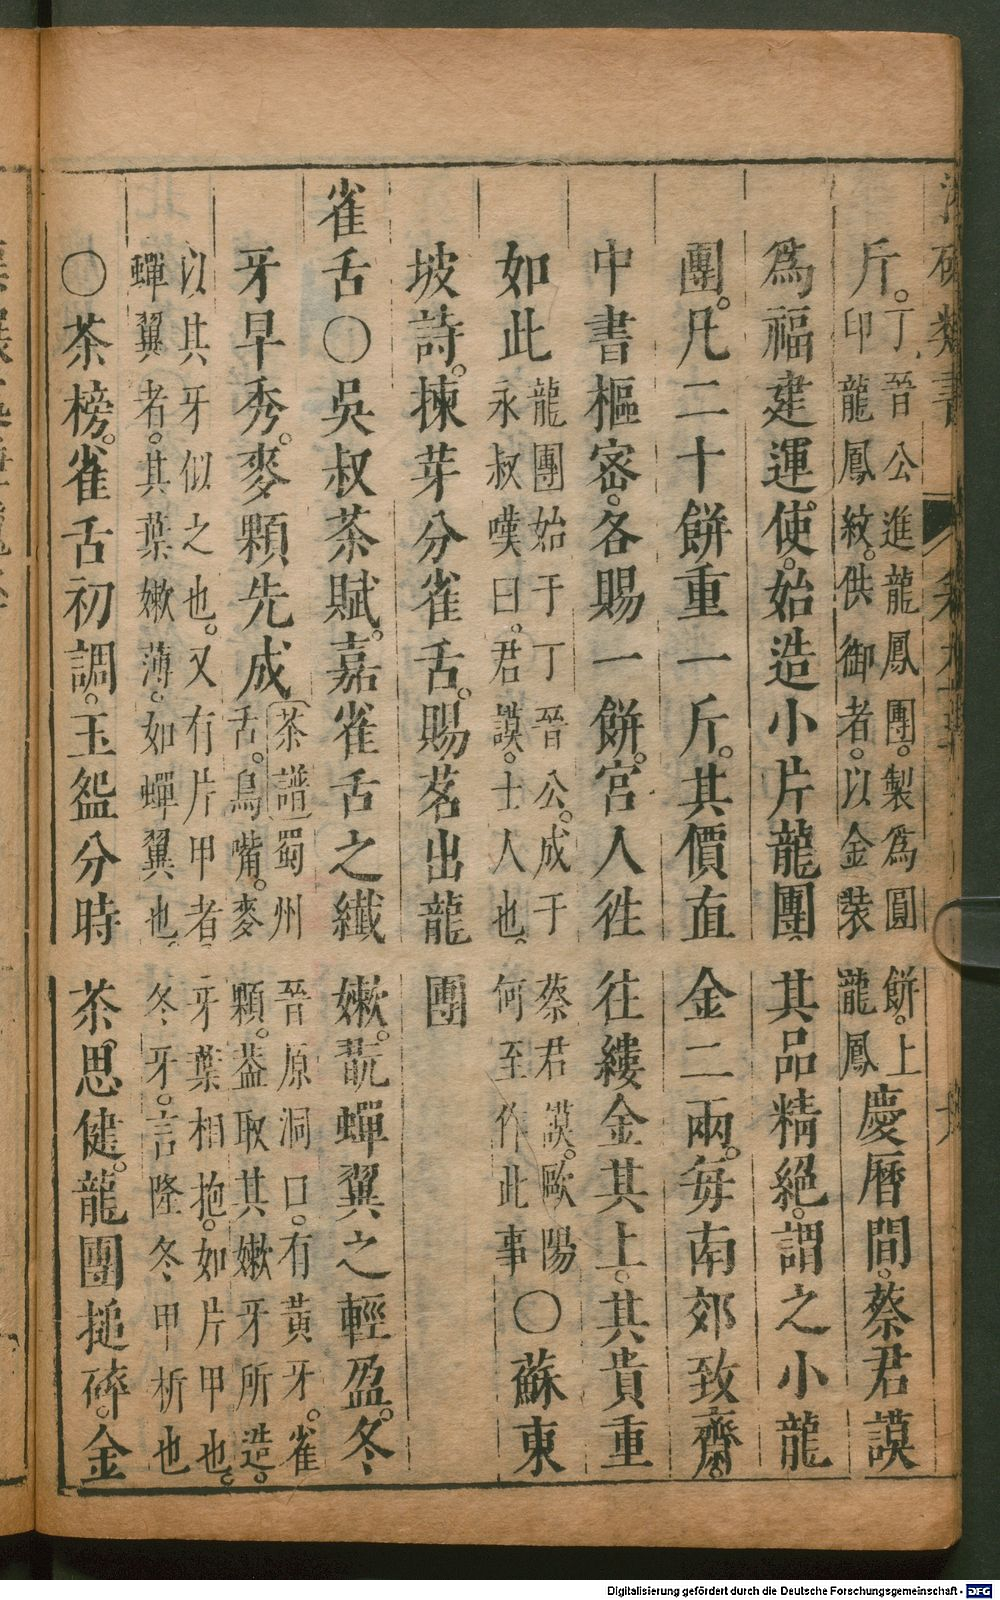 斤。丁晉公進龍鳳團。製爲圓餅。上印龍鳳紋。供御者。以金裝龍鳳慶曆間。蔡君謨
爲福建運使。始造小片龍團。其品精絕。謂之小龍
團。凡二十餅重一斤。其價直金二兩。每南郊致齋。
中書樞密。各賜一餅。宮人徃往縷金其上。其貴重
如此龍團始于丁晉公。成于蔡君謨。歐陽永叔嘆曰。君謨。士人也。何至作此事〇蘇東
坡詩。揀芽分雀舌。賜茗出龍團
雀舌〇吳叔茶賦。嘉雀舌之纎嫩。翫蟬翼之輕盈。冬
牙早秀。麥顆先成茶譜蜀州晉原洞口。有黃牙。雀舌。鳥嘴。麥顆。葢取其嫩牙所造。
以其牙似之也。又有片甲者。牙葉相抱。如片甲也。蟬翼者。其葉嫩薄。如蟬翼也。冬牙。言隆冬甲析也
〇茶榜。雀舌初調。玉盌分時茶思健。龍團搥碎。金
Digitalisierung gefördert durch die Deutsche Forschungsgemeinschaft - DFG